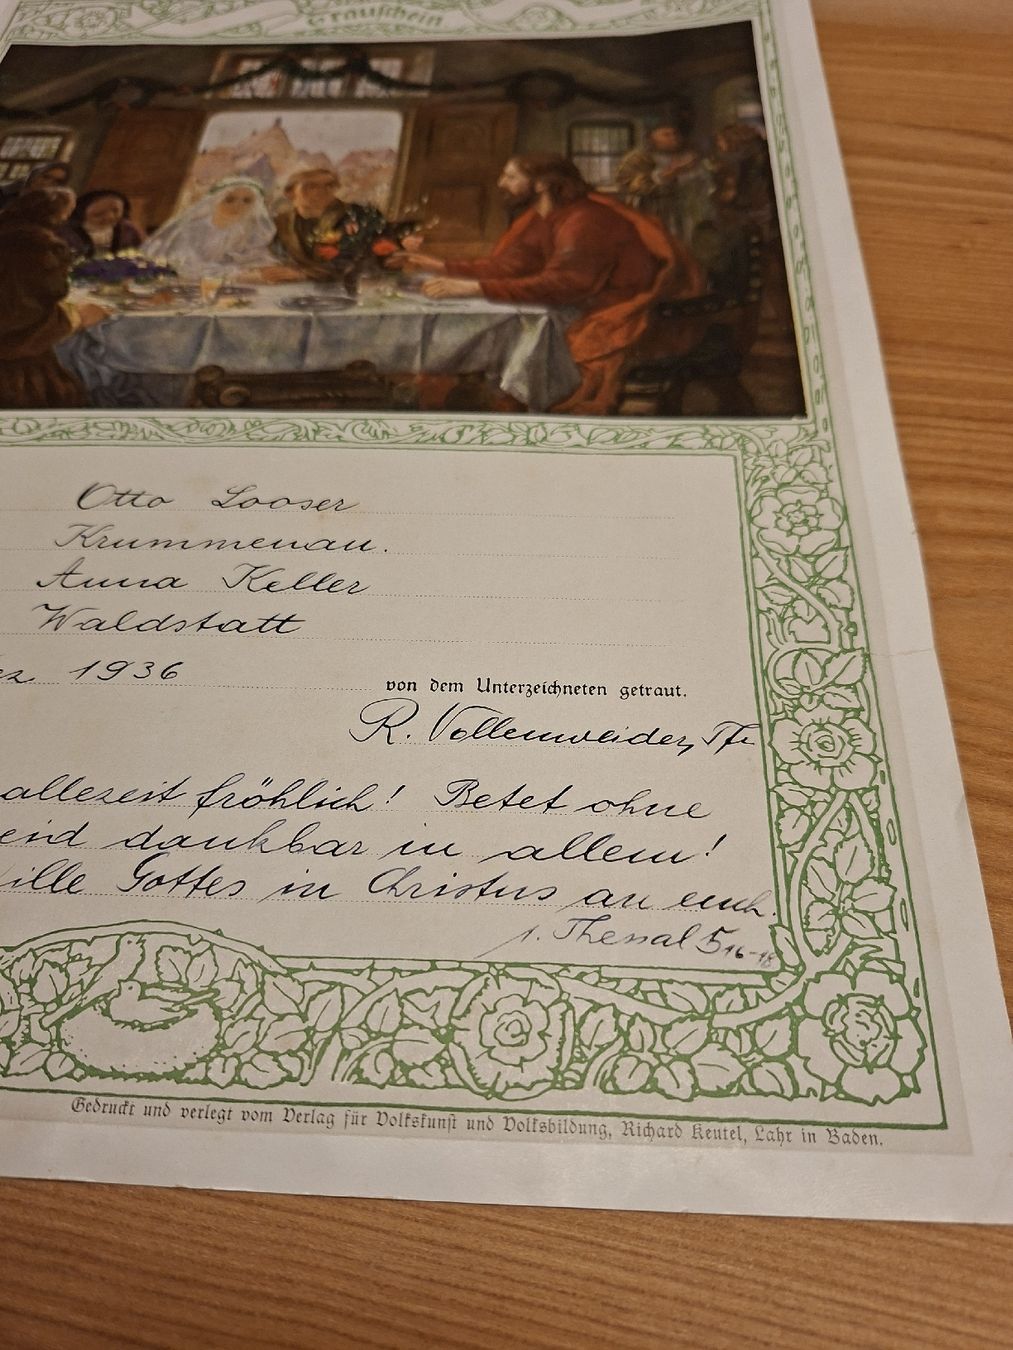 Trauschein
Otto Looser
Krummenau.
Anna Keller
Waldstatt
ez 1936
von dem Unterzeichneten getraut.
R. Vollenweider, Pfr
allezeit fröhlich! Betet ohne
eid dankbar in allem!
ille Gottes in Christus an euch.
1. Thessal 5 16-18
Gedruckt und verlegt vom Verlag für Volkskunst und Volksbildung, Richard Keutel, Lahr in Baden.